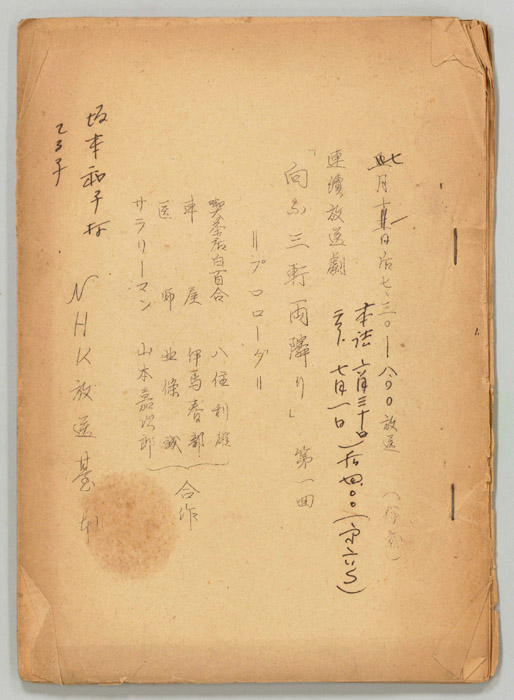 七月 日后七、三〇—八、〇〇放送
本読 六月三十日
テスト 七月一日 后四、〇〇
連續放送劇
「向う三軒両隣り」 第一回
＝プロローグ＝
喫茶店白百合 八住利雄
車屋 伊馬春部
医師 北條誠
サラリーマン 山本嘉次郎
合作
NHK放送台本
坂本和子